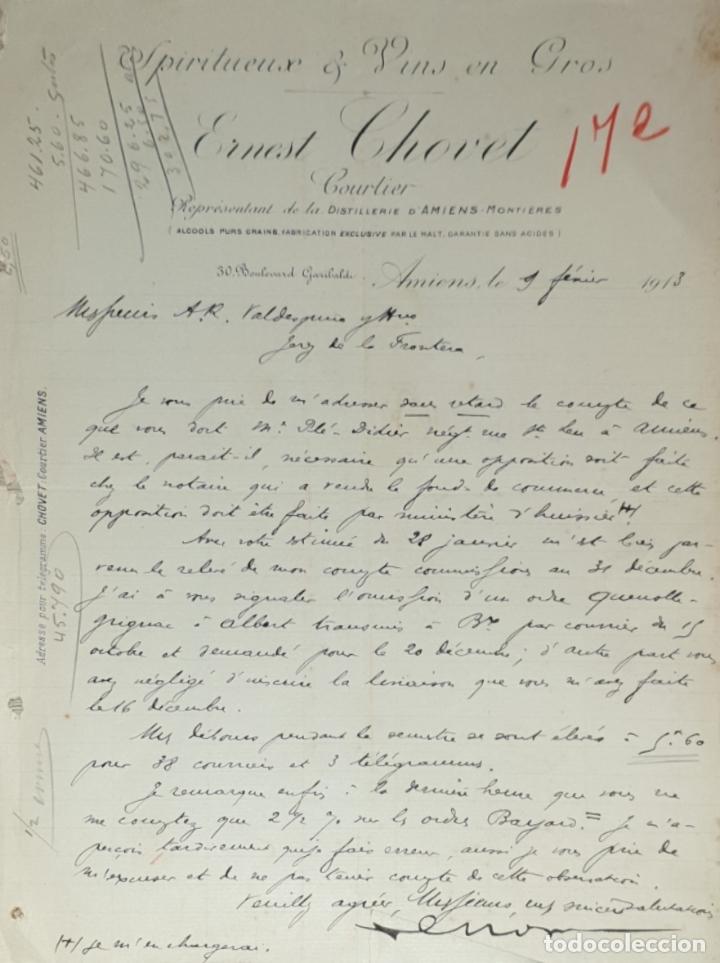 Spiritueux & Vins en Gros
Ernest Chovet
172
Courtier
Représentant de la DISTILLERIE D'AMIENS-MONTIÈRES
(ALCOOLS PURS GRAINS, FABRICATION EXCLUSIVE PAR LE MALT, GARANTIE SANS ACIDES)
30, Boulevard Garibaldi. Amiens, le 9 février 1913
Messieurs A. R. Valdespino y Hno
Jerez de la Frontera,
Je vous prie de m'adresser sans retard le compte de ce
que vous doit Mr. Plé-Didier négt. rue St Leu à Amiens.
Il est, paraît-il, nécessaire qu'une opposition soit faite
chez le notaire qui a vendu le fonds de commerce, et cette
opposition doit être faite par ministère d'huissier (+)
Avec votre estimée du 28 janvier m'est bien par-
venu le relevé de mon compte commissions au 31 décembre.
J'ai à vous signaler l'omission d'un ordre Quenolle-
Grignac à Albert transmis à par courrier du 15
octobre et demandé pour le 20 décembre; d'autre part vous
avez négligé d'inscrire la livraison que vous m'avez faite
le 16 décembre.
Mes débours pendant le semestre se sont élevés à 5.60
pour 38 courriers et 3 télégrammes.
Je remarque enfin à la dernière heure que vous ne
me comptez que 2 1/2 % sur les ordres Bayard. = Je m'a-
perçois tardivement que je fais erreur, aussi je vous prie de
m'excuser et de ne pas tenir compte de cette observation.
Veuillez agréer, Messieurs, mes sincères salutations
(+) je m'en chargerai.
Adresse pour télégramme: CHOVET Courtier AMIENS.
461.25
5.60
466.85
170.60
296.25
6.50
302.75
45.790
1/2
todocoleccion